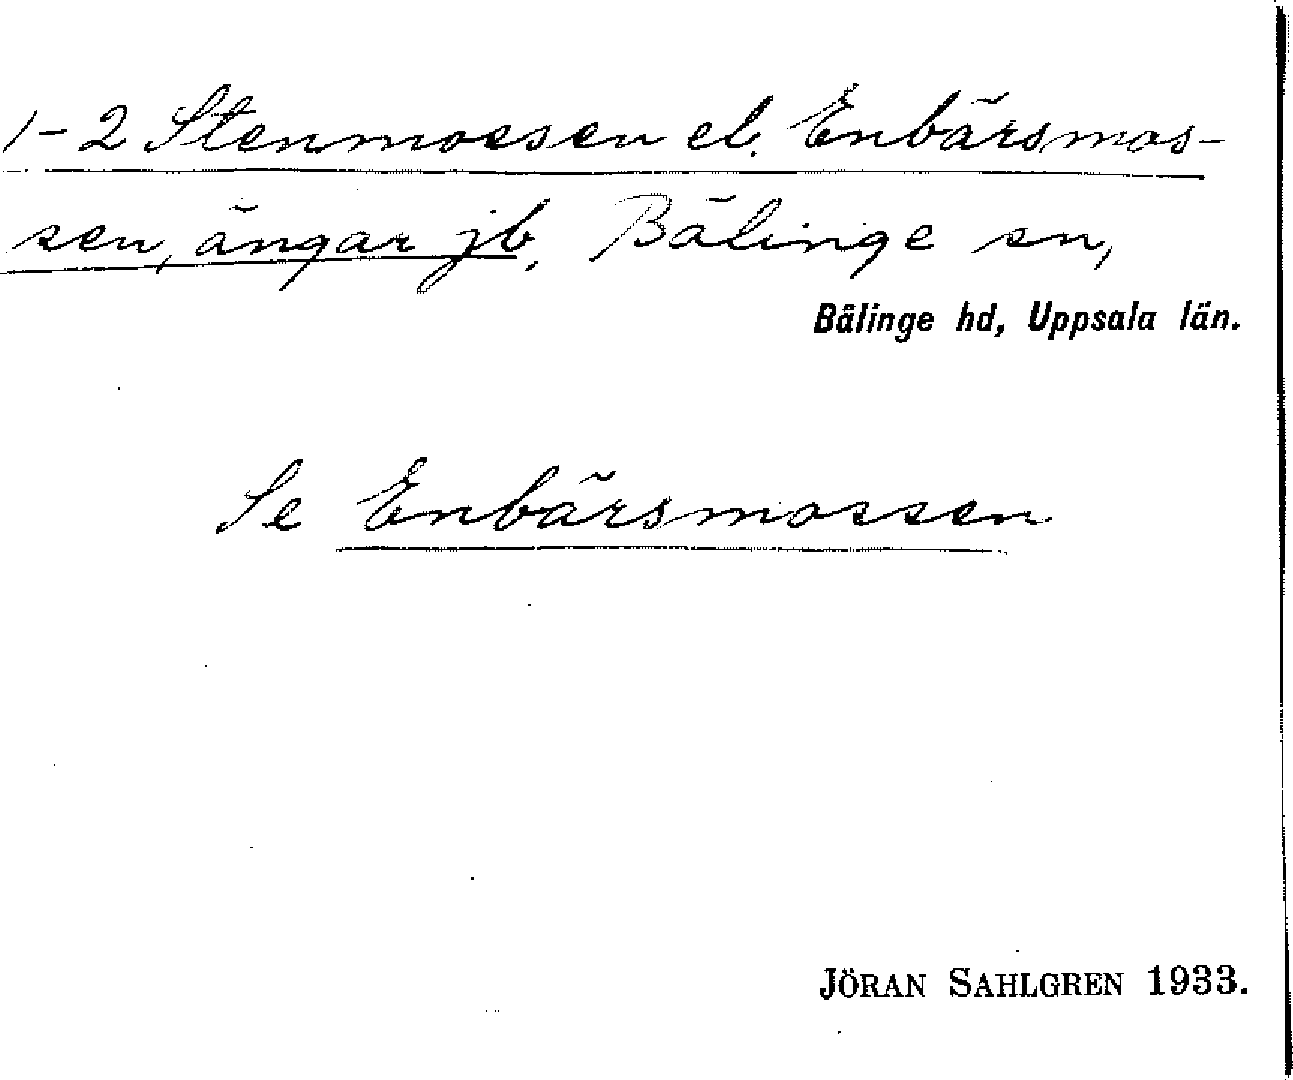 1-2 Stenmossen el. Enbärsmos-
sen, ängar jb, Bälinge sn,
Bälinge hd, Uppsala län.
Se Enbärsmossen
JÖRAN SAHLGREN 1933.